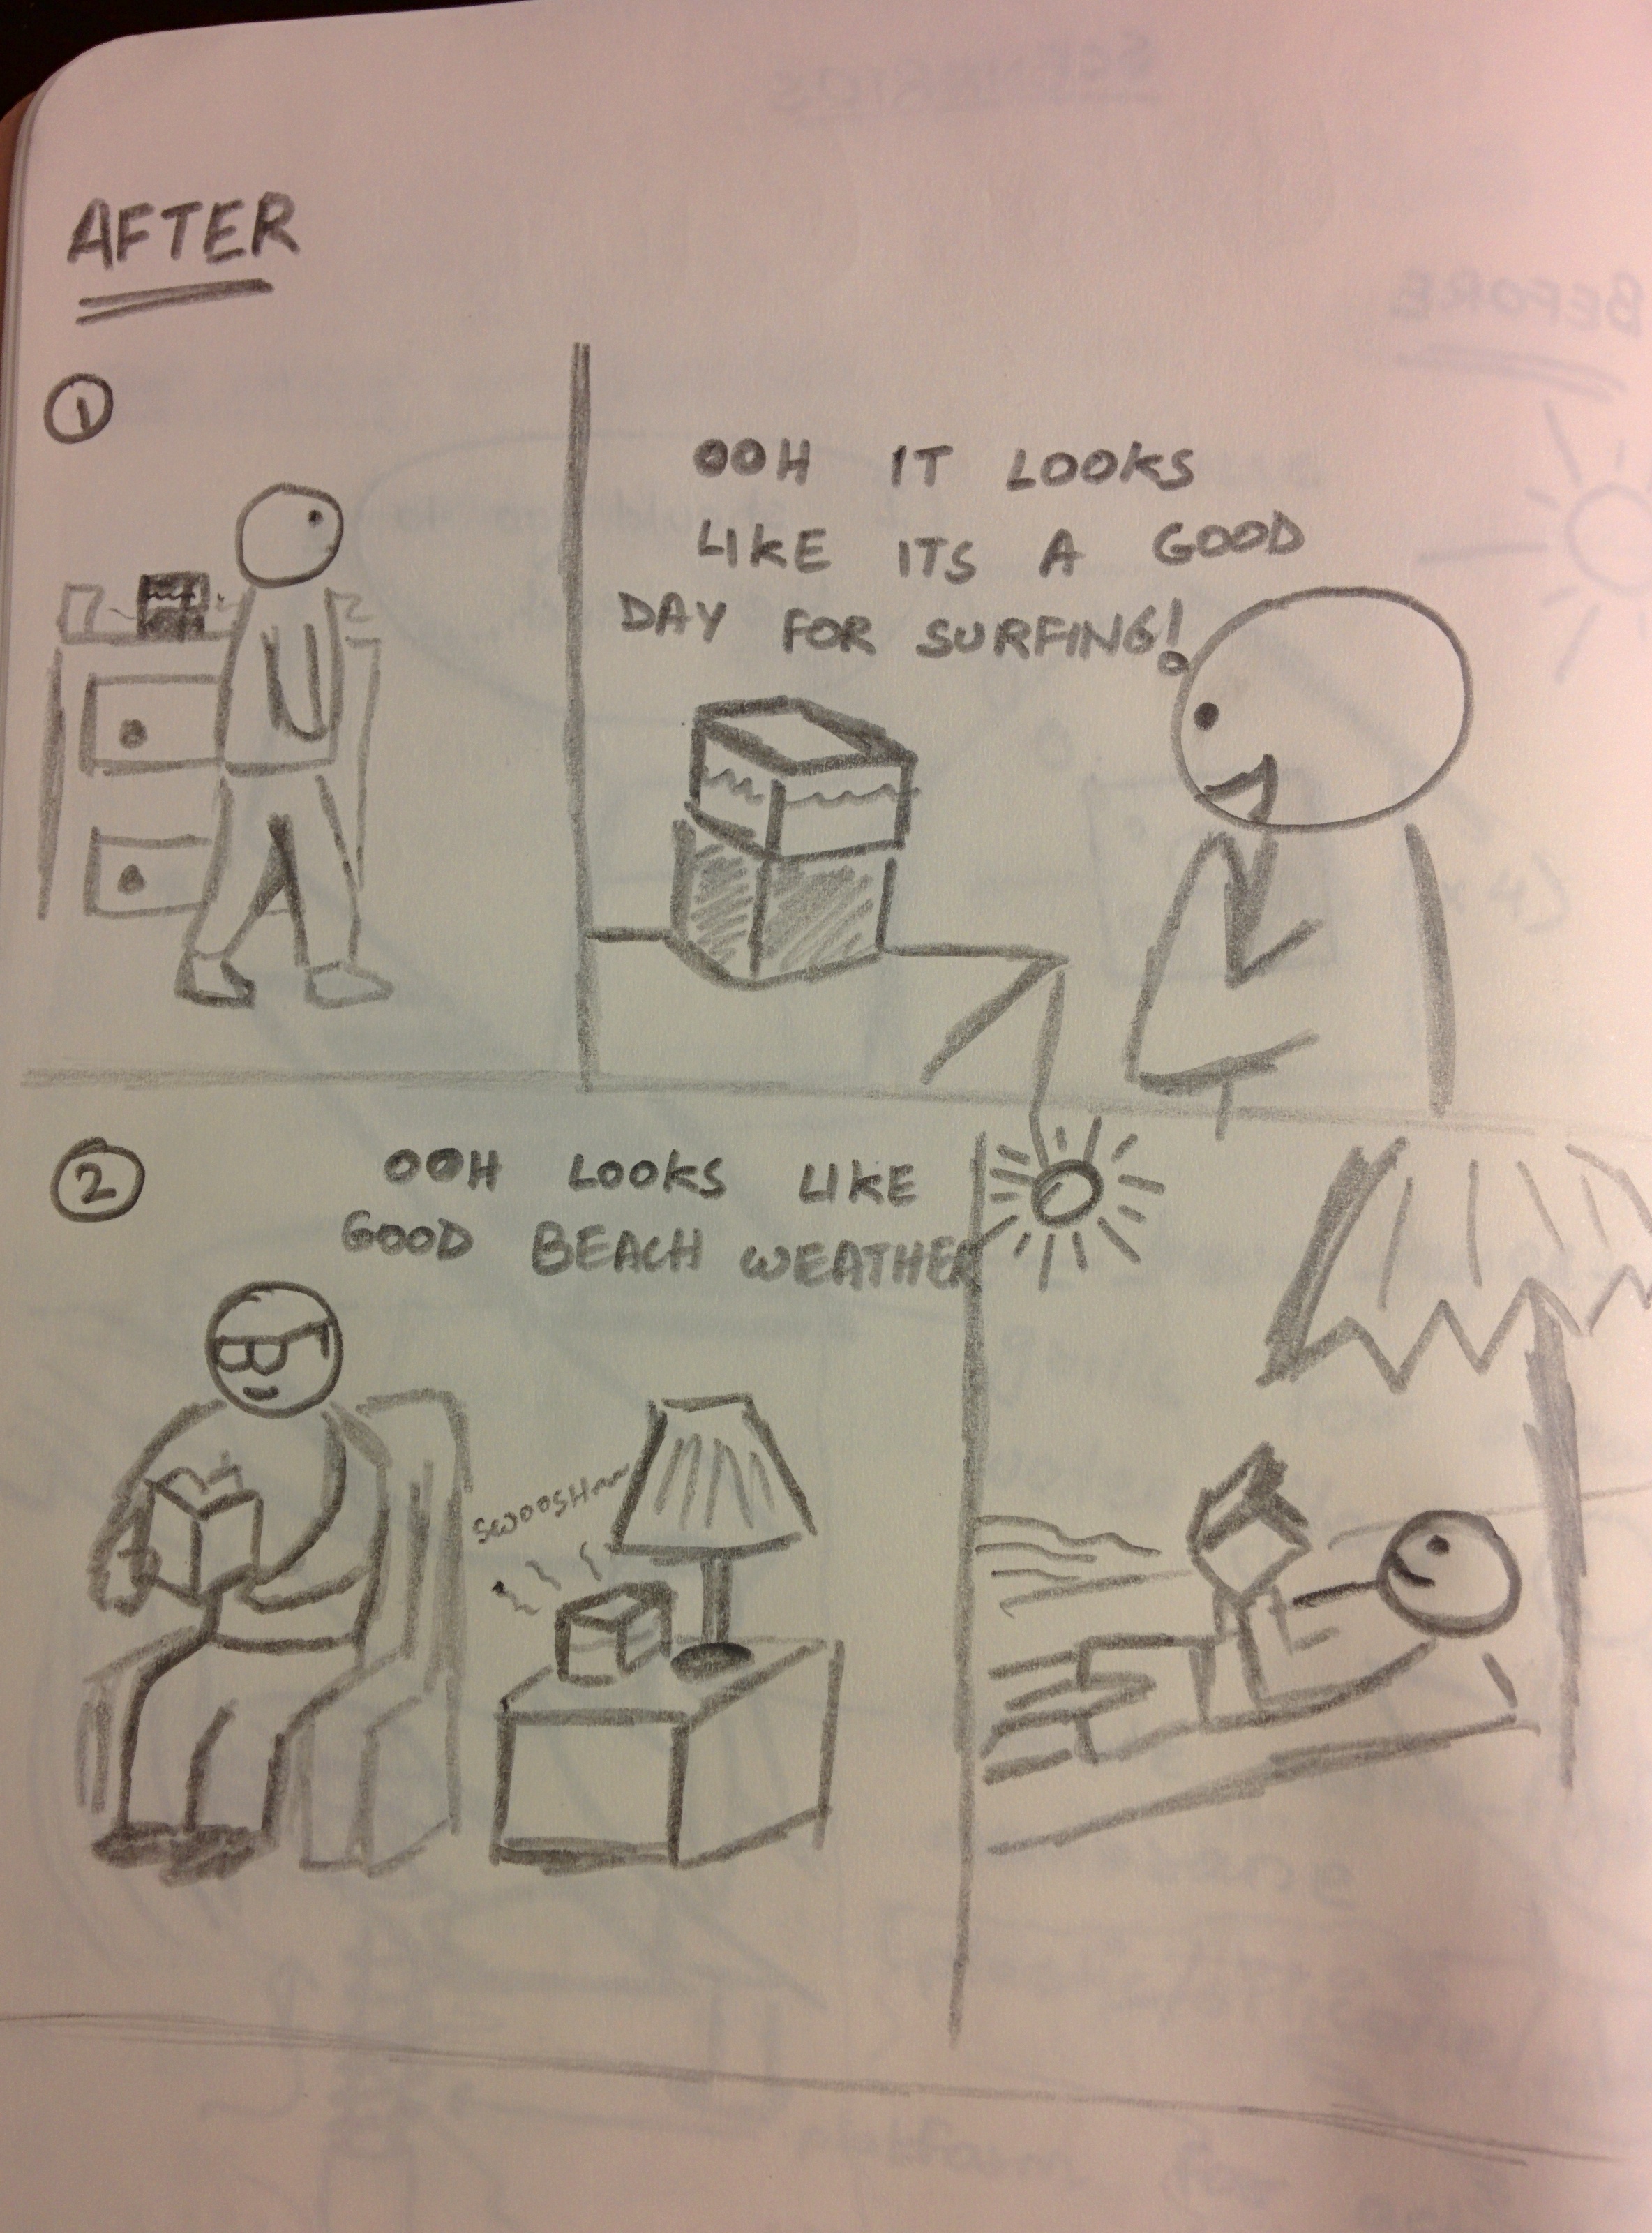 AFTER
1
OOH IT LOOKS
LIKE ITS A GOOD
DAY FOR SURFING!
2
OOH LOOKS LIKE
GOOD BEACH WEATHER
SWOOSH~~
SCENARIOS
BEFORE